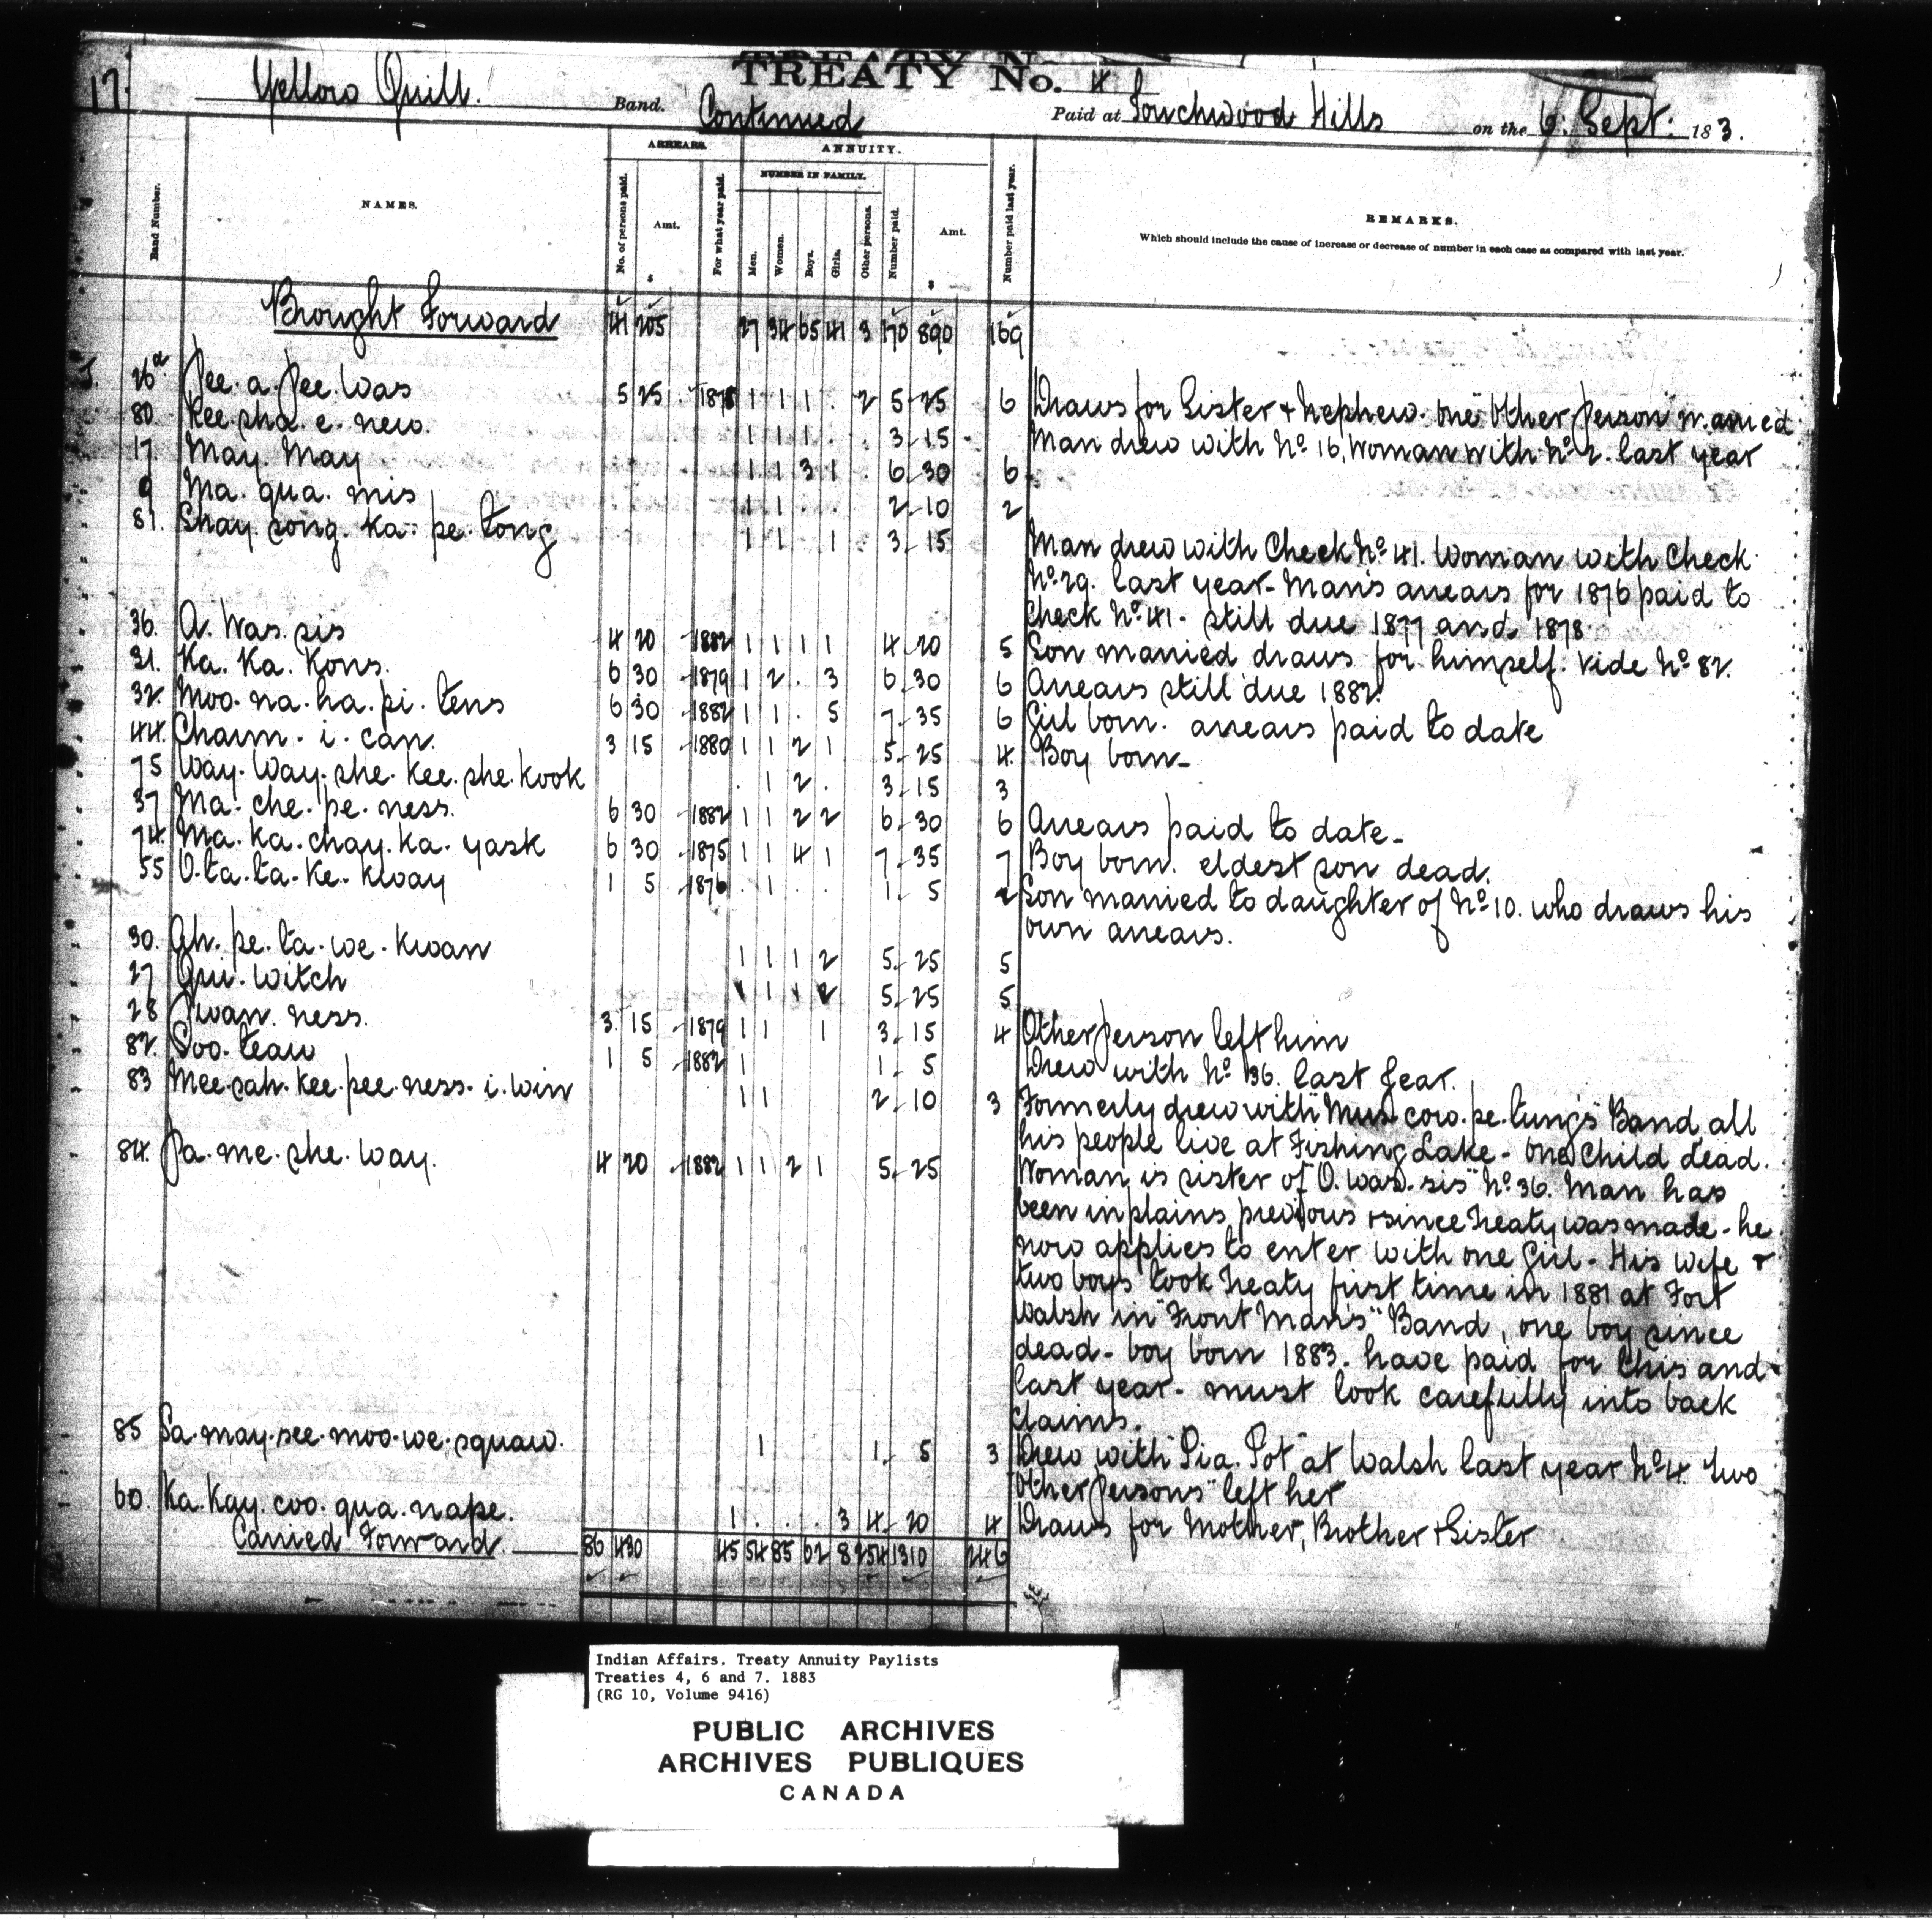 17. Yellow Quill. Band. TREATY No. 4 Paid at Touchwood Hills on the 6: Sept: 18 3.
Continued
Band Number. NAMES. ARREARS. No. of persons paid. Amt. $ For what year paid. ANNUITY. NUMBER IN FAMILY. Men. Women. Boys. Girls. Other persons. Number paid. Amt. $ Number paid last year. REMARKS.
Which should include the cause of increase or decrease of number in each case as compared with last year.
Brought Forward 41 205 27 34 65 41 3 170 890 169
26a Pee. a. Pee. Was 5 25 1 1 1 . 2 5 25 6 Draws for Sister & Nephew. One "Other Person" married
80. Kee. sha. e. new. 1 1 1 . . 3 15 Man drew with No 16, Woman with No 2. last year
17 May. May 1 1 3 1 6 30 6
9 Ma. qua. mis 1 1 . . 2 10 2
81. Shay. song. ka. pe. tong 1 1 1 3 15 Man drew with Check No 41. Woman with Check
No 29. last year. Man's arrears for 1876 paid to
Check No 41. still due 1877 and 1878.
36. A. Was. sis 4 20 1882 1 1 1 1 4 20 5 Son married draws for himself. Vide No 82.
31. Ka. Ka. Kons. 6 30 1879 1 2 . 3 6 30 6 Arrears still due 1882
32. Moo. na. ha. pi. tens 6 30 1882 1 1 . 5 7 35 6 Girl born. arrears paid to date
44. Cham. i. can. 3 15 1880 1 1 2 1 5 25 4. Boy born
75 Way. Way. she. kee. she. kook . 1 2 . 3 15 3
37 Ma. che. pe. ness. 6 30 1882 1 1 2 2 6 30 6 Arrears paid to date
74. Ma. ka. chay. ka. yask 6 30 1875 1 1 4 1 7 35 7 Boy born. eldest son dead.
55 O. ta. ta. ke. kway 1 5 1876 . 1 . . 1 5 2 Son married to daughter of No 10. who draws his
own arrears.
30. Ah. pe. ta. we. kwan 1 1 1 2 5 25 5
27 Qui. witch 1 1 1 2 5 25 5
28 Pwan. ness. 3 15 1879 1 1 1 3 15 4 Other Person left him
82. Soo. teaw 1 5 1882 1 1 5 Drew with No 36. last Year.
83 Mee. sah. kee. pee. ness. i. win 1 1 2 10 3 Formerly drew with "Mus. cow. pe. tung's" Band all
his people live at Fishing Lake. One Child dead.
84. Pa. me. she. way. 4 20 1882 1 1 2 1 5 25 Woman is sister of "O. was. sis" No 36. Man has
been in plains previous & since Treaty was made. he
now applies to enter with one Girl. His Wife &
two boys took Treaty first time in 1881 at Fort
Walsh in "Front Man's" Band, one boy since
dead. boy born 1883. have paid for this and
last year. must look carefully into back
claims.
85 Sa. may. see. moo. we. squaw. 1 1 5 3 Drew with "Pia. Pot" at Walsh last year No 4. Two
"Other Persons" left her
60. Ka. Kay. coo. qua. nape. 1 . . . 3 4 20 4 Draws for Mother, Brother & Sister
Carried Forward. 86 430 45 54 85 62 8 254 1310 246
Indian Affairs. Treaty Annuity Paylists
Treaties 4, 6 and 7. 1883
(RG 10, Volume 9416)
PUBLIC ARCHIVES
ARCHIVES PUBLIQUES
CANADA